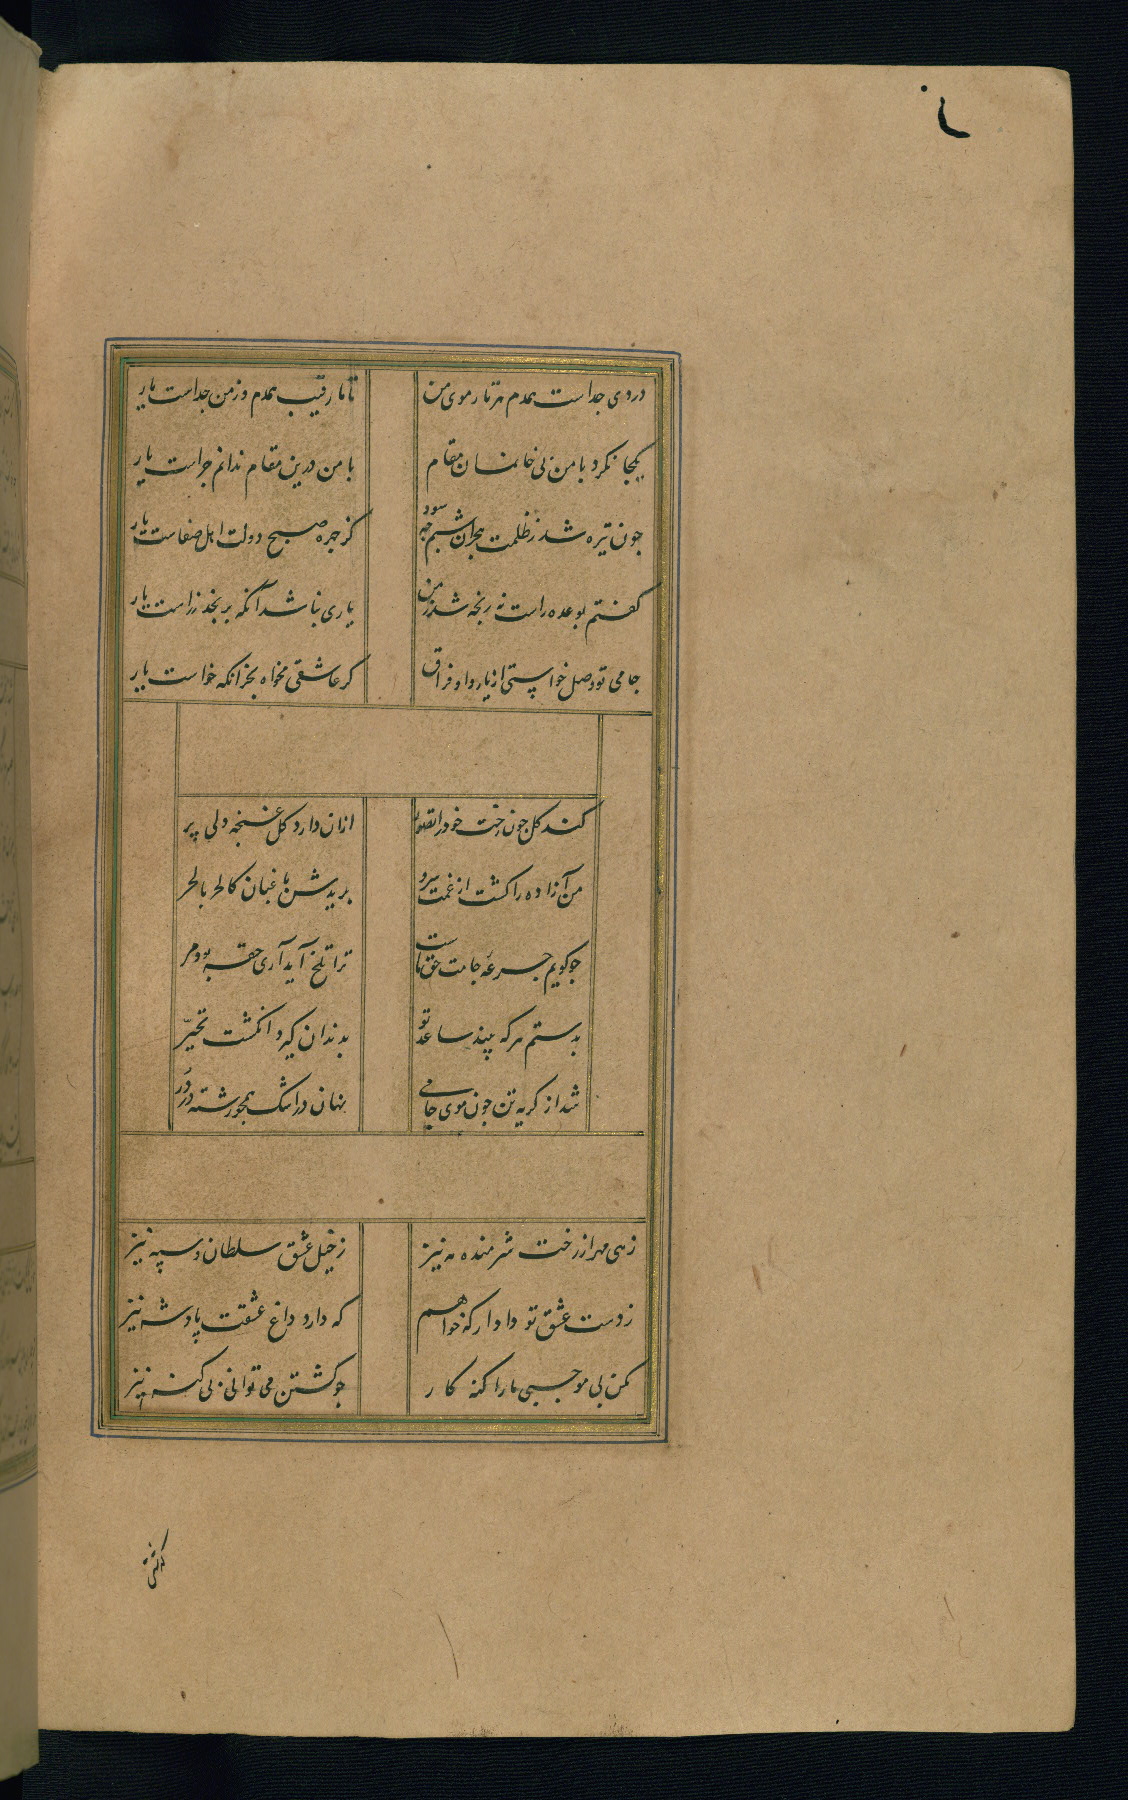 دردی جداست همدم هر تار موی من
تا با رقیب همدم و ز من جداست یار
یکجا نکرد با من بی خانمان مقام
با من درین مقام ندانم چراست یار
چون تیره شد ز ظلمت هجران شبم چه سود
کز چهره صبح دولت اهل صفاست یار
گفتم بوعده راست نه رنجه شد ز من
یاری نباشد آنکه برنجد ز راست یار
جامی تو وصل خواستی از یار و او فراق
گر عاشقی مخواه بجز آنکه خواست یار
کند گل چون رخت خود را تصور
ازان دارد گل غنچه دلی پر
من آزاده را کشت از غمت سرو
بریدش باغبان کالحر بالحر
چو گویم جرعه جامت حق ماست
ترا تلخ آید آری حق بود مر
بدستم هر که بیند ساعد تو
بدندان گیرد انگشت تحیر
شد از گریه تن چون موی جامی
نهان در اشک همچو رشته در در
زهی مهر از رخت شرمنده مه نیز
ز خیل عشق سلطان و سپه نیز
ز دست عشق تو داد ار که خواهم
که دارد داغ عشقت پادشه نیز
مکن بی موجبی ما را گنه کار
چو کشتن می توانی بی گنه نیز